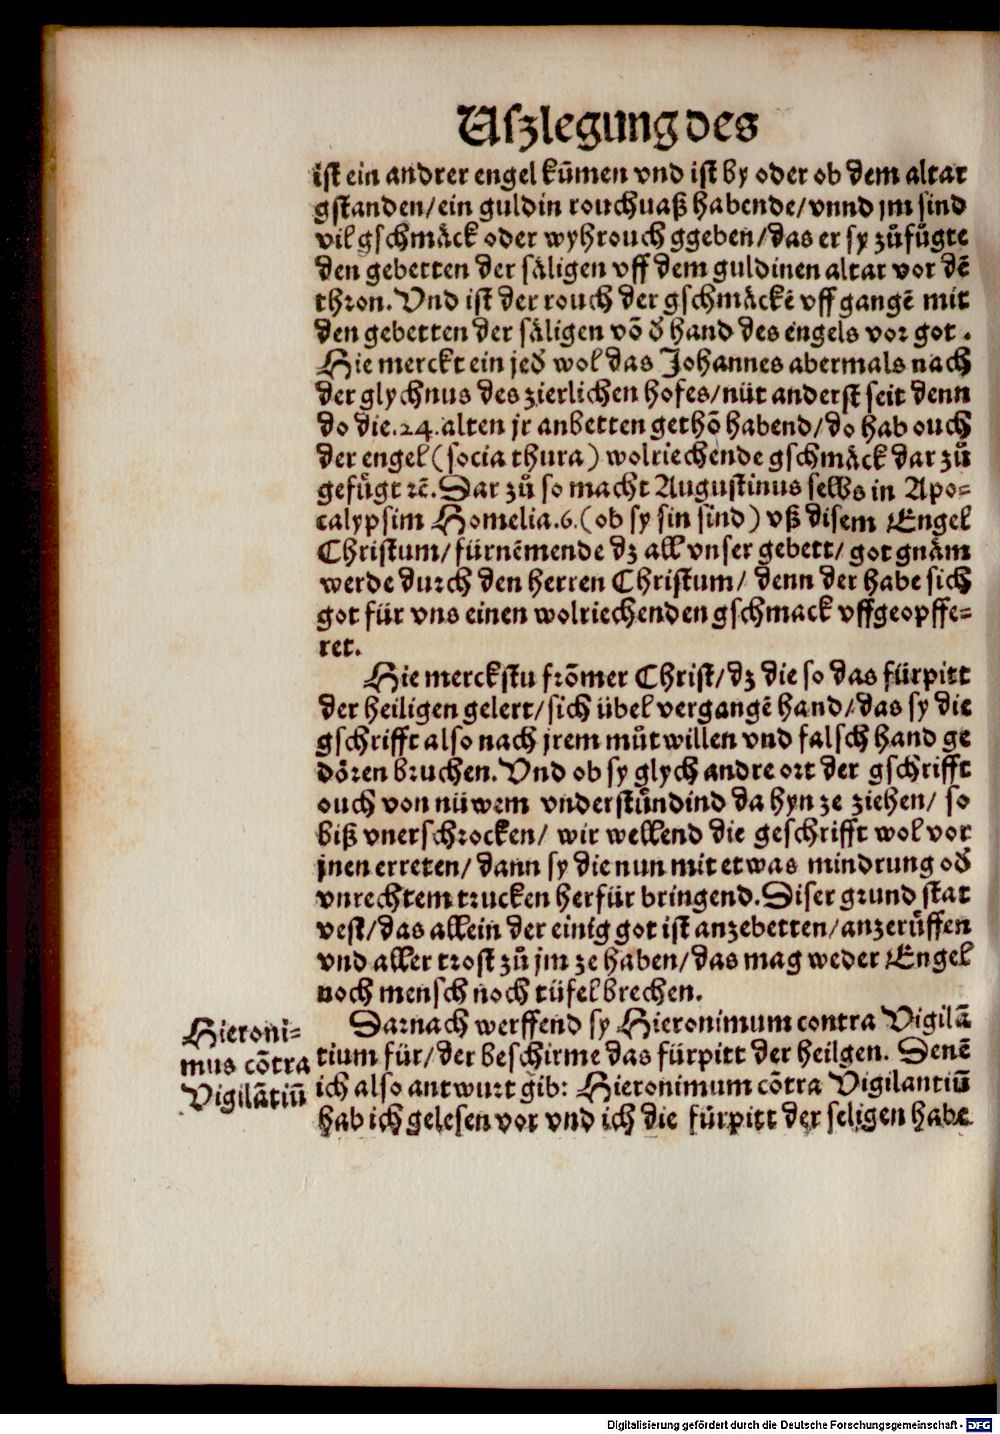 Uſzlegung des
iſt ein andrer engel kum̄en vnd iſt by oder ob dem altar
gſtanden/ein guldin rouchuaß habende/vnnd jm ſind
vil gſchmäck oder wyhrouch ggeben/das er ſy zůfügte
den gebetten der ſäligen vff dem guldinen altar vor dē
thron. Vnd iſt der rouch der gſchmäckē vff gangē mit
den gebetten der ſäligen vō d̕ hand des engels vor got.
Hie merckt ein jed̕ wol das Johannes abermals nach
der glychnus des zierlichen hofes/nüt anderſt ſeit denn
do die.24.alten jr anbetten gethō habend/do hab ouch
der engel (ſocia thura) wolriechende gſchmäck dar zů
gefügt ꝛc̄. Dar zů ſo macht Auguſtinus ſelbs in Apo⸗
calypſim Homelia.6.(ob ſy ſin ſind) vß diſem Engel
Chriſtum/fürnēmende dz all vnſer gebett/ got gnäm
werde durch den herren Chriſtum/ denn der habe ſich
got für vns einen wolriechenden gſchmack vffgeopffe⸗
ret.
Hie merckſtu frōmer Chriſt/dz die ſo das fürpitt
der heiligen gelert/ſich übel vergangē hand/das ſy die
gſchrifft alſo nach jrem můtwillen vnd falſch hand ge
dören bruchen. Vnd ob ſy glych andre ort der gſchrifft
ouch von nüwem vnderſtůndind da hyn ze ziehen/ ſo
biß vnerſchrocken/ wir wellend die geſchrifft wol vor
jnen erreten/ dann ſy die nun mit etwas mindrung od̕
vnrechtem trucken herfür bringend. Diſer grund ſtat
veſt/das allein der einig got iſt anzebetten/anzerůffen
vnd aller troſt zů jm ze haben/das mag weder Engel
noch menſch noch tüfel brechen.
Hieroni⸗
mus cōtra
Vigilātiū
Darnach werffend ſy Hieronimum contra Vigilā
tium für/der beſchirme das fürpitt der heilgen. Denē
ich alſo antwurt gib: Hieronimum cōtra Vigilantiū
hab ich geleſen vor vnd ich die fürpitt der ſeligen habe
Digitalisierung gefördert durch die Deutsche Forschungsgemeinschaft - DFG